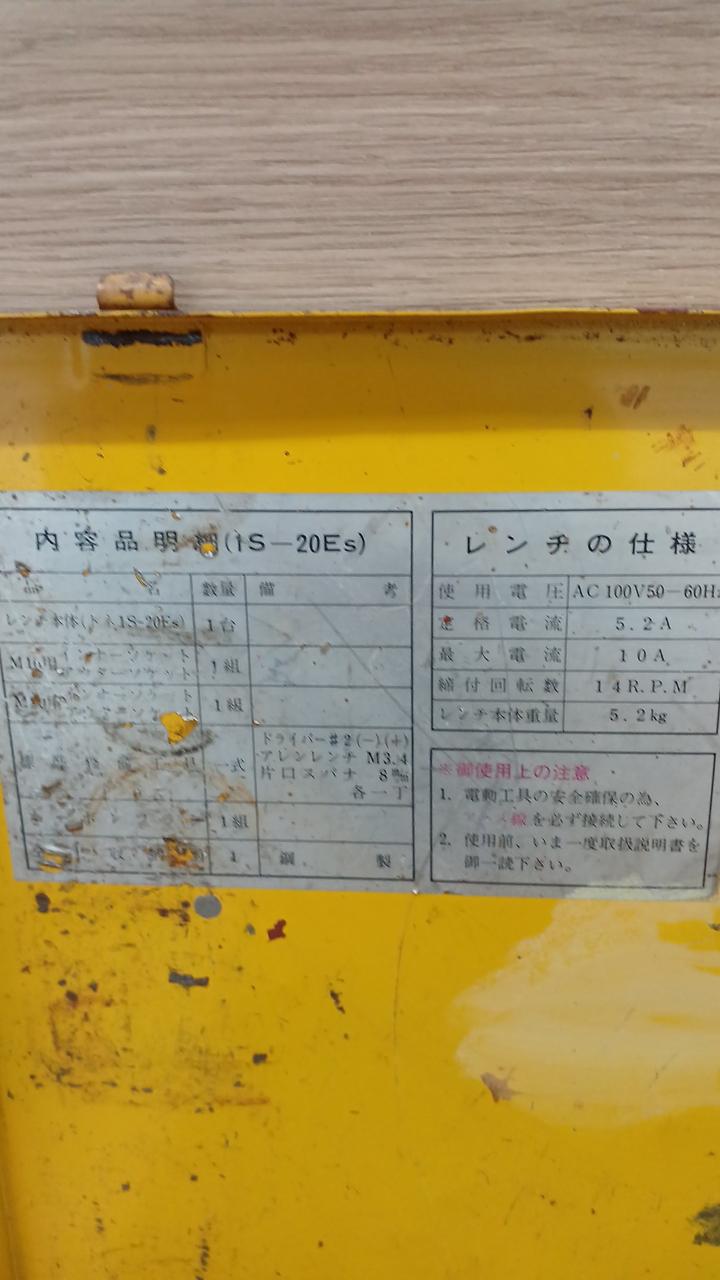 内容品明細(1S-20Es)
名 数量 備考
レンチ本体(トネ1S-20Es) 1台
インナーソケット
アウターソケット 1組
インナーソケット
1組
一式 ドライバー#2(-)(+)
アレンレンチ M3.4
片口スパナ 8㎜
各一丁
1組
1 鋼製
レンチの仕様
使用電圧 AC100V50-60Hz
定格電流 5.2A
最大電流 10A
締付回転数 14R.P.M
レンチ本体重量 5.2kg
※御使用上の注意
1. 電動工具の安全確保の為、
アース線を必ず接続して下さい。
2. 使用前、いま一度取扱説明書を
御一読下さい。